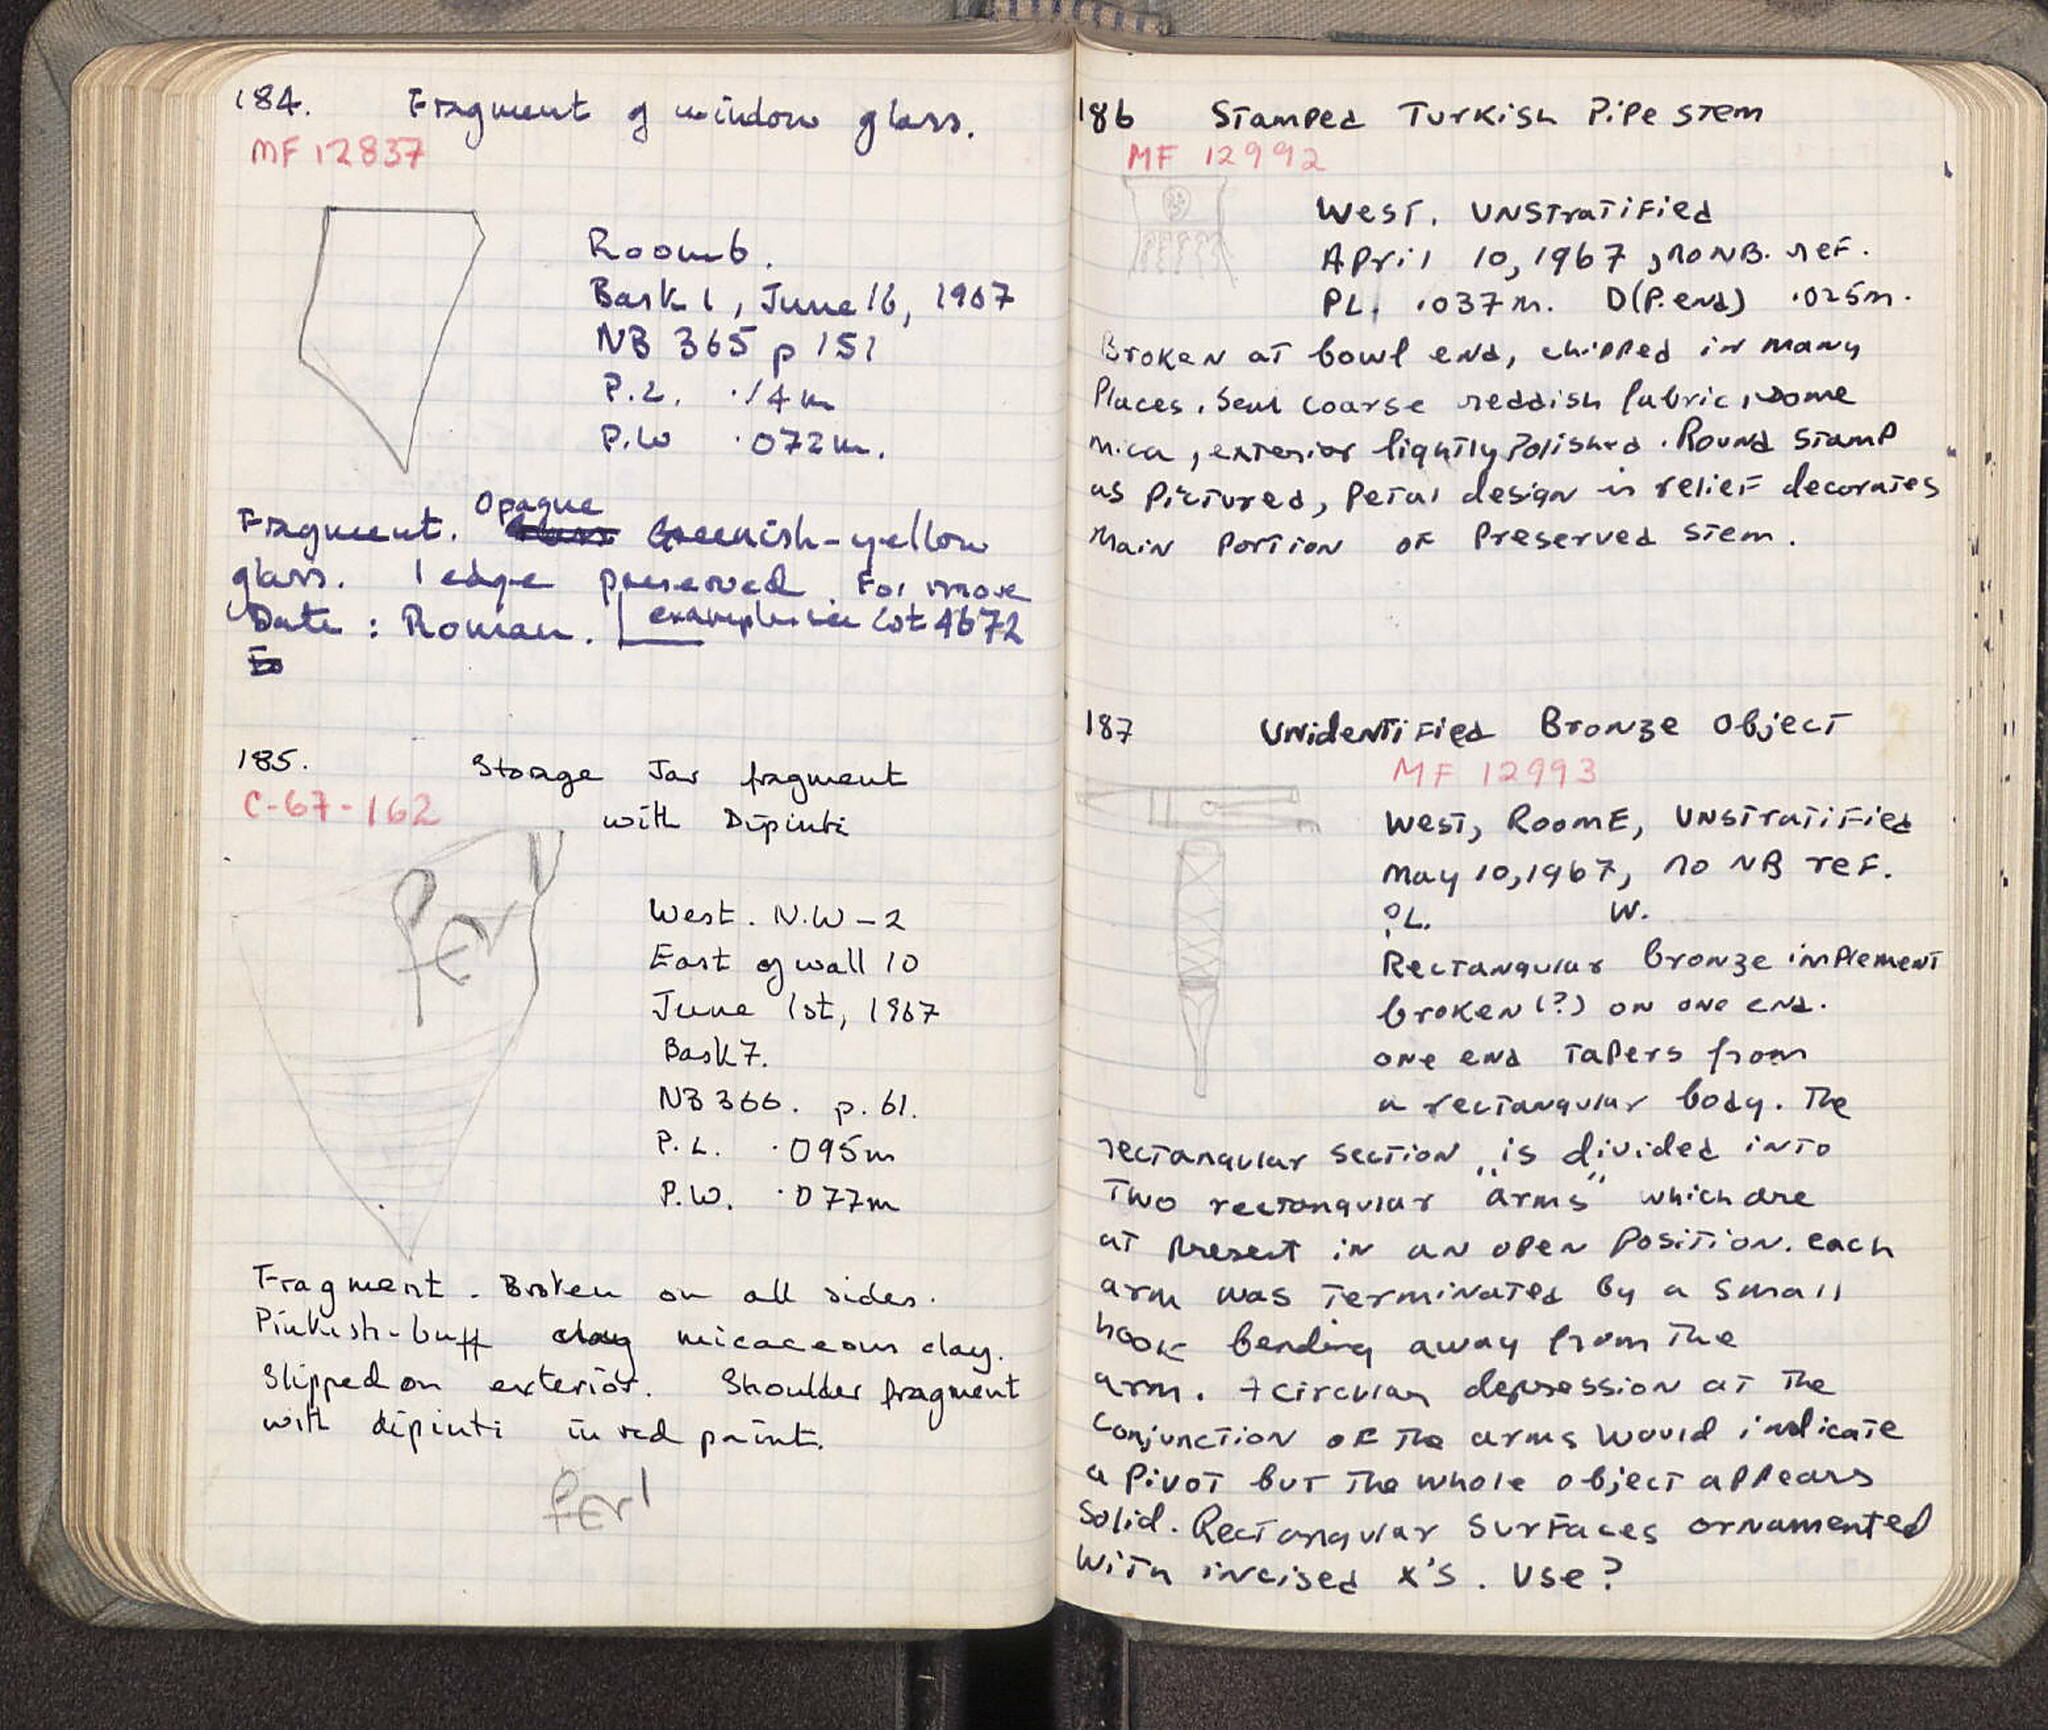 184. Fragment of window glass.
MF 12837
Room 6.
Bask 1, June 16, 1967
NB 365 p 151
P.L. .14m
P.W .072m.
Opaque
Fragment. Greenish-yellow
glass. 1 edge preserved. For more
Date : Roman. examples see Lot 4672
185. Storage Jar fragment
C-67-162
with Dipinti
West. N.W-2
East of wall 10
June 1st, 1967
Bask 7.
NB 366. p. 61.
P.L. .095m
P.W. .077m
Fragment. Broken on all sides.
Pinkish-buff clay micaceous clay.
Slipped on exterior. Shoulder fragment
with dipinti in red paint.
186 Stamped Turkish Pipe Stem
MF 12992
West. Unstratified
April 10, 1967, no NB. ref.
PL. .037m. D(P.end) .025m.
Broken at bowl end, chipped in many
Places. Semi coarse reddish fabric, some
mica, exterior lightly Polished. Round stamp
as Pictured, Petal design in relief decorates
main portion of Preserved stem.
187 Unidentified Bronze Object
MF 12993
West, Room E, Unstratified
May 10, 1967, no NB ref.
PL. W.
Rectangular bronze implement
broken (?) on one end.
one end Tapers from
a rectangular body. The
rectangular section is divided into
Two rectangular "arms" which are
at present in an open Position. each
arm was Terminated by a small
hook bending away from The
arm. A circular depression at The
conjunction of The arms would indicate
a Pivot but The whole object appears
solid. Rectangular surfaces ornamented
with incised x's. Use?